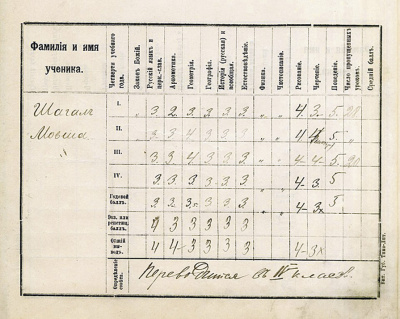 Фамилія и имя ученика.
Четверти учебнаго года.
Законъ Божій.
Русскій языкъ и церк.-слав.
Ариѳметика.
Геометрія.
Географія.
Исторія (русская) и всеобщая.
Естествовѣдѣніе.
Физика.
Чистописаніе.
Рисованіе.
Черченіе.
Поведеніе.
Число пропущенныхъ уроковъ.
Средній баллъ.
Шагалъ
Мовша.
I. „ 3 2 3 3 3 3 „ „ 4 3 5 28
II. „ 3 3 4 3 3 3 „ „ 4 4 5 „
III. „ 3 3 4 3 3 3 „ „ 4 4 5 20
IV. „ 3 3 3 3 3 3 4 3 5
Годовой баллъ. 3 2 3 3 3 3 4 3 5
Экз. или репетиц. баллъ. 4 3 3 3 3 3
Общій выводъ. 4 4 3 3 3 3 4 3
Опредѣленіе совѣта. Переводится въ IV классъ.
Вит. Губ. Тип.-Лит.